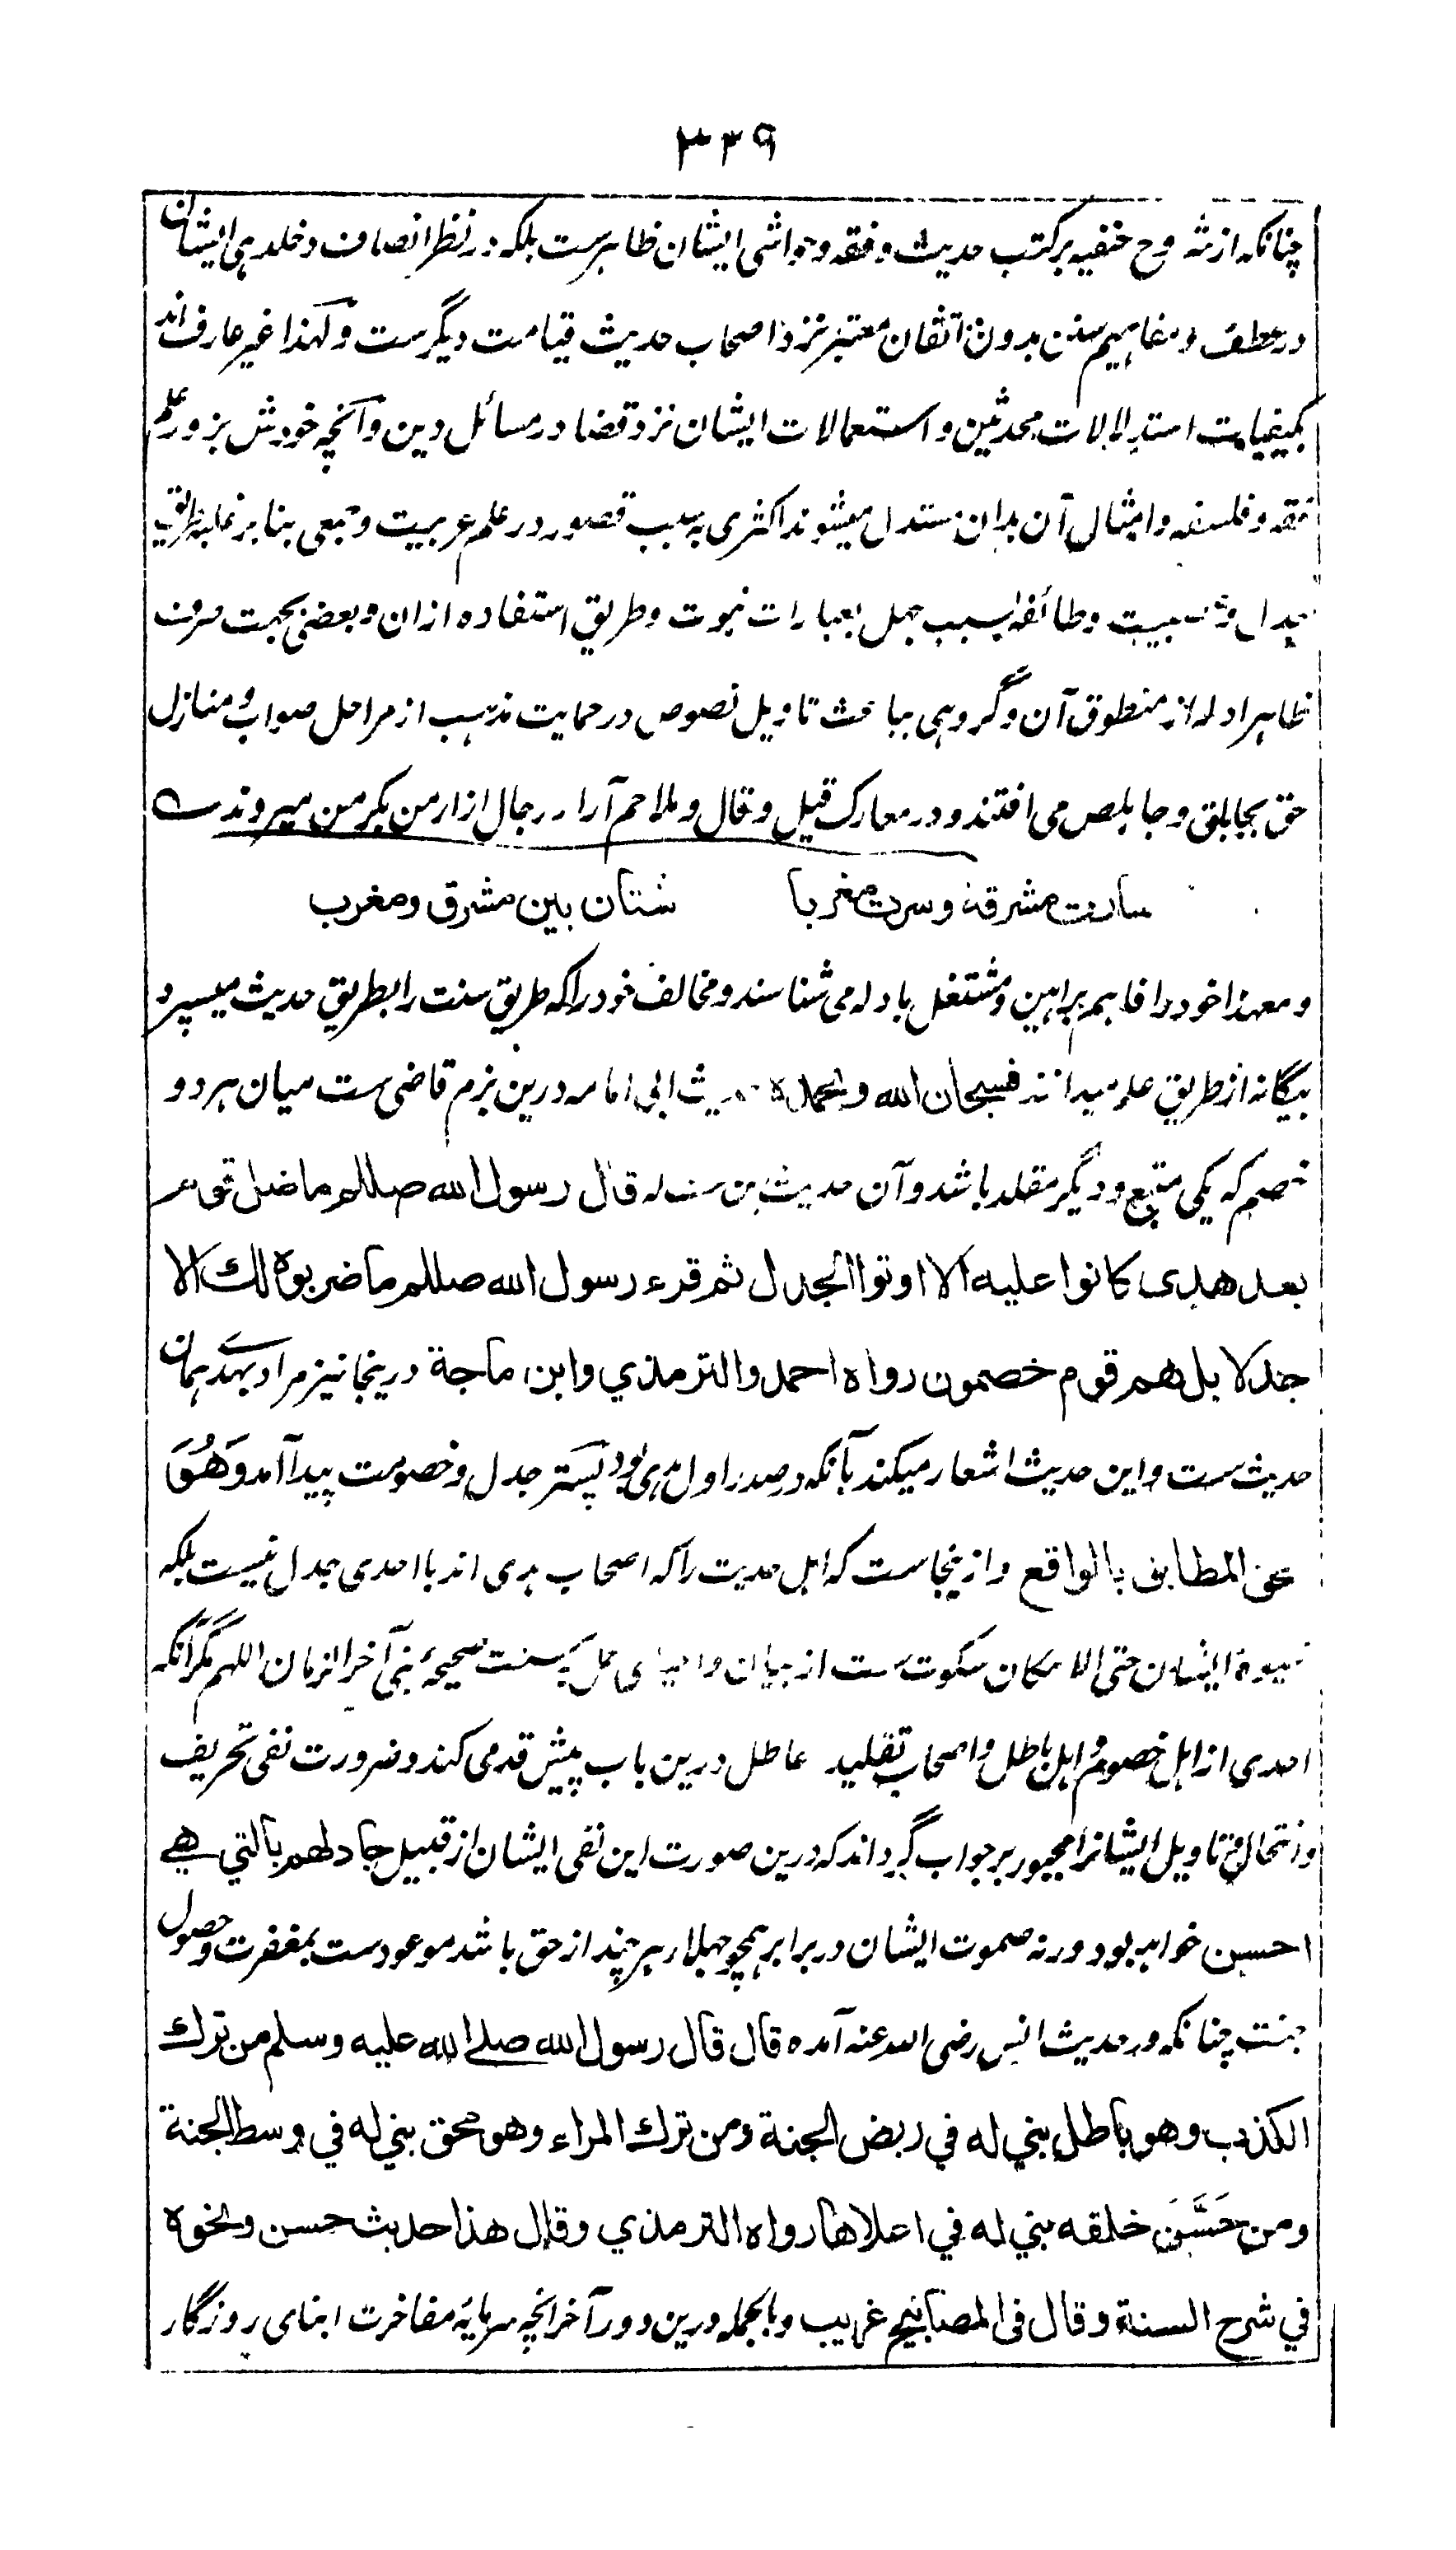 ۳۳۹
چنانکه از شروح حنفیه بر کتب حدیث و فقه و حواشی ایشان ظاهرست بلکه در نظر انصاف دخلدهی ایشان
در عطف و مفاهیم سنن بدون اتقان معتبر نزد اصحاب حدیث قیامت دیگرست و لهذا غیر عارف اند
بکیفیات استدلالات محدثین و استعمالات ایشان نزد قضا در مسائل دین و آنچه خودش بزور علم
فقه و فلسفه و امثال آن بدان مستدل میشوند اکثری به سبب قصور در علم عربیت و جمعی بنا بر غلبه طریق
جدال و و طائفه بسبب جهل بعبارات نبوت و طریق استفاده ازان و بعضی بجهت صرف
ظاهر ادله از منطوق آن و گروهی بباعث تاویل نصوص در حمایت مذهب از مراحل صواب و منازل
حق بجابلق و جابلص می افتند و در معارک قیل و قال و ملاحم آرا رجال ازار من بکر من میروند ے
سارت مشرقة و سرت مغربا شتان بین مشرق ومغرب
و معهذا خود را فاهم براهین و مشتغل بادله می شناسند و مخالف خود را که طریق سنت را بطریق حدیث میسپرد
بیگانه از طریق علم میدانند فسبحان الله و بحمده حدیث ابی امامه درین بزم قاضی ست میان هر دو
خصم که یکی متبع و دیگر مقلد باشد و آن حدیث این ست که قال رسول الله صللم ما ضل قوم
بعد هدی کانوا علیه الا اوتوا الجدل ثم قرء رسول الله صللم ما ضربوه لك الا
جدلا بل هم قوم خصمون رواه احمد والترمذي وابن ماجة درینجا نیز مراد بهدے همان
حدیث ست و این حدیث اشعار میکند بآنکه در صدر اول هدی بود پستر جدل و خصومت پیدا آمد وَهُوَ
عین المطابق بالواقع و ازینجاست که اهل حدیث را که اصحاب هدی اند با احدی جدل نیست بلکه
شیوهٔ ایشان حتی الامکان سکوت ست از بیان و احیای عمل به سنت صحیحهٔ نبی آخر الزمان اللهم مگر آنکه
احدی از اهل خصوم و اهل باطل و اصحاب تقلید عاطل درین باب پیش قدمی کند و ضرورت نفی تحریف
و انتحال و تاویل ایشانرا مجبور بر جواب گرداند که درین صورت این نفی ایشان از قبیل جادلهم بالتي هي
احسن خواهد بود ورنه صموت ایشان در برابر همچو جهلا هر چند از حق باشد موعودست بمغفرت و حصول
جنت چنانکه در حدیث انس رضی الله عنه آمده قال قال رسول الله صلے الله علیه وسلم من ترك
الكذب وهو باطل بني له في ربض الجنة ومن ترك المراء وهو محق بني له في وسط الجنة
ومن حَسَّنَ خلقه بني له في اعلاها رواه الترمذي وقال هذا حدیث حسن ونحوه
في شرح السنة وقال فی المصابیح غریب و بالجمله درین دور آخر آنچه سرمایهٔ مفاخرت ابنای روزگار